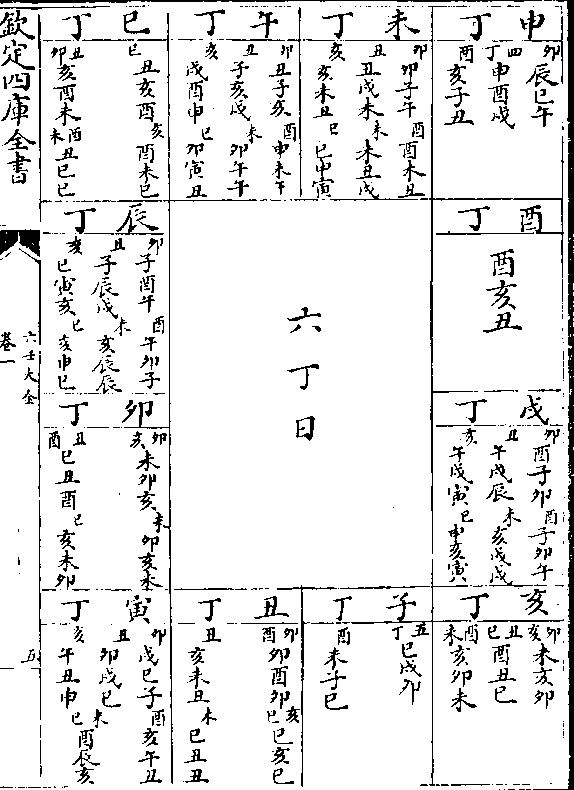 欽定四庫全書
六壬大全
卷一
五
六丁日
丁 申
卯辰巳午
丁四申酉戌
酉亥子丑
丁 未
卯卯子午 酉酉未丑
丑丑戌未 未未丑戌
亥亥未丑 巳巳申寅
丁 午
卯丑子亥 酉申未午
丑子亥戌 未卯午午
亥戌酉申 巳卯寅丑
丁 巳
巳丑亥酉 亥酉未巳
丑卯亥酉未 酉未丑巳巳
丁 辰
卯子酉午 酉午卯子
丑子辰戌 未亥辰辰
亥巳寅亥 巳亥申巳
丁 卯
卯亥未卯亥 未卯亥未
丑酉巳丑酉 巳亥未卯
丁 寅
卯戌巳子 酉亥午丑
丑卯戌巳
亥午丑申 未巳酉辰亥
丁 丑
卯酉卯酉卯 亥巳巳亥巳
丑亥未丑 未巳丑丑
丁 子
五丁巳戌卯
酉未子巳
丁 亥
卯亥未亥卯
丑巳酉丑巳
酉未亥卯未
丁 戌
卯酉子卯 酉子卯午
丑午戌辰 未亥戌戌
亥午戌寅 巳申亥寅
丁 酉
酉亥丑